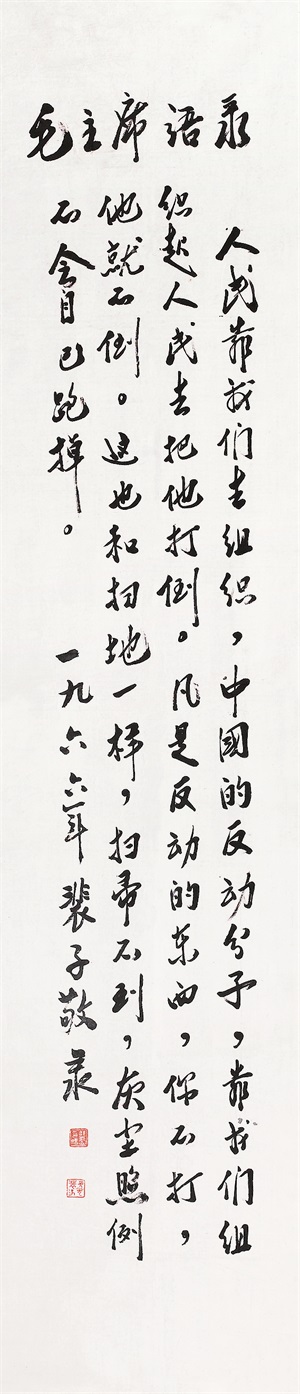 毛主席语录
人民靠我们去组织，中國的反动分子，靠我们组
织起人民去把他打倒。凡是反动的东西，你不打，
他就不倒。这也和扫地一样，扫帚不到，灰尘照例
不会自己跑掉。 一九六六年裴子敬录